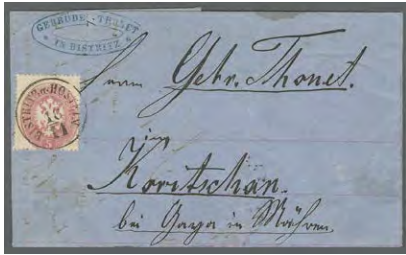 GEBRÜDER THONET
IN BISTRITZ
BISTRITZ A. HOSTEIN
18
11
5
Herrn Gebr. Thonet.
in
Koritschan.
bei Gaya in Mähren.